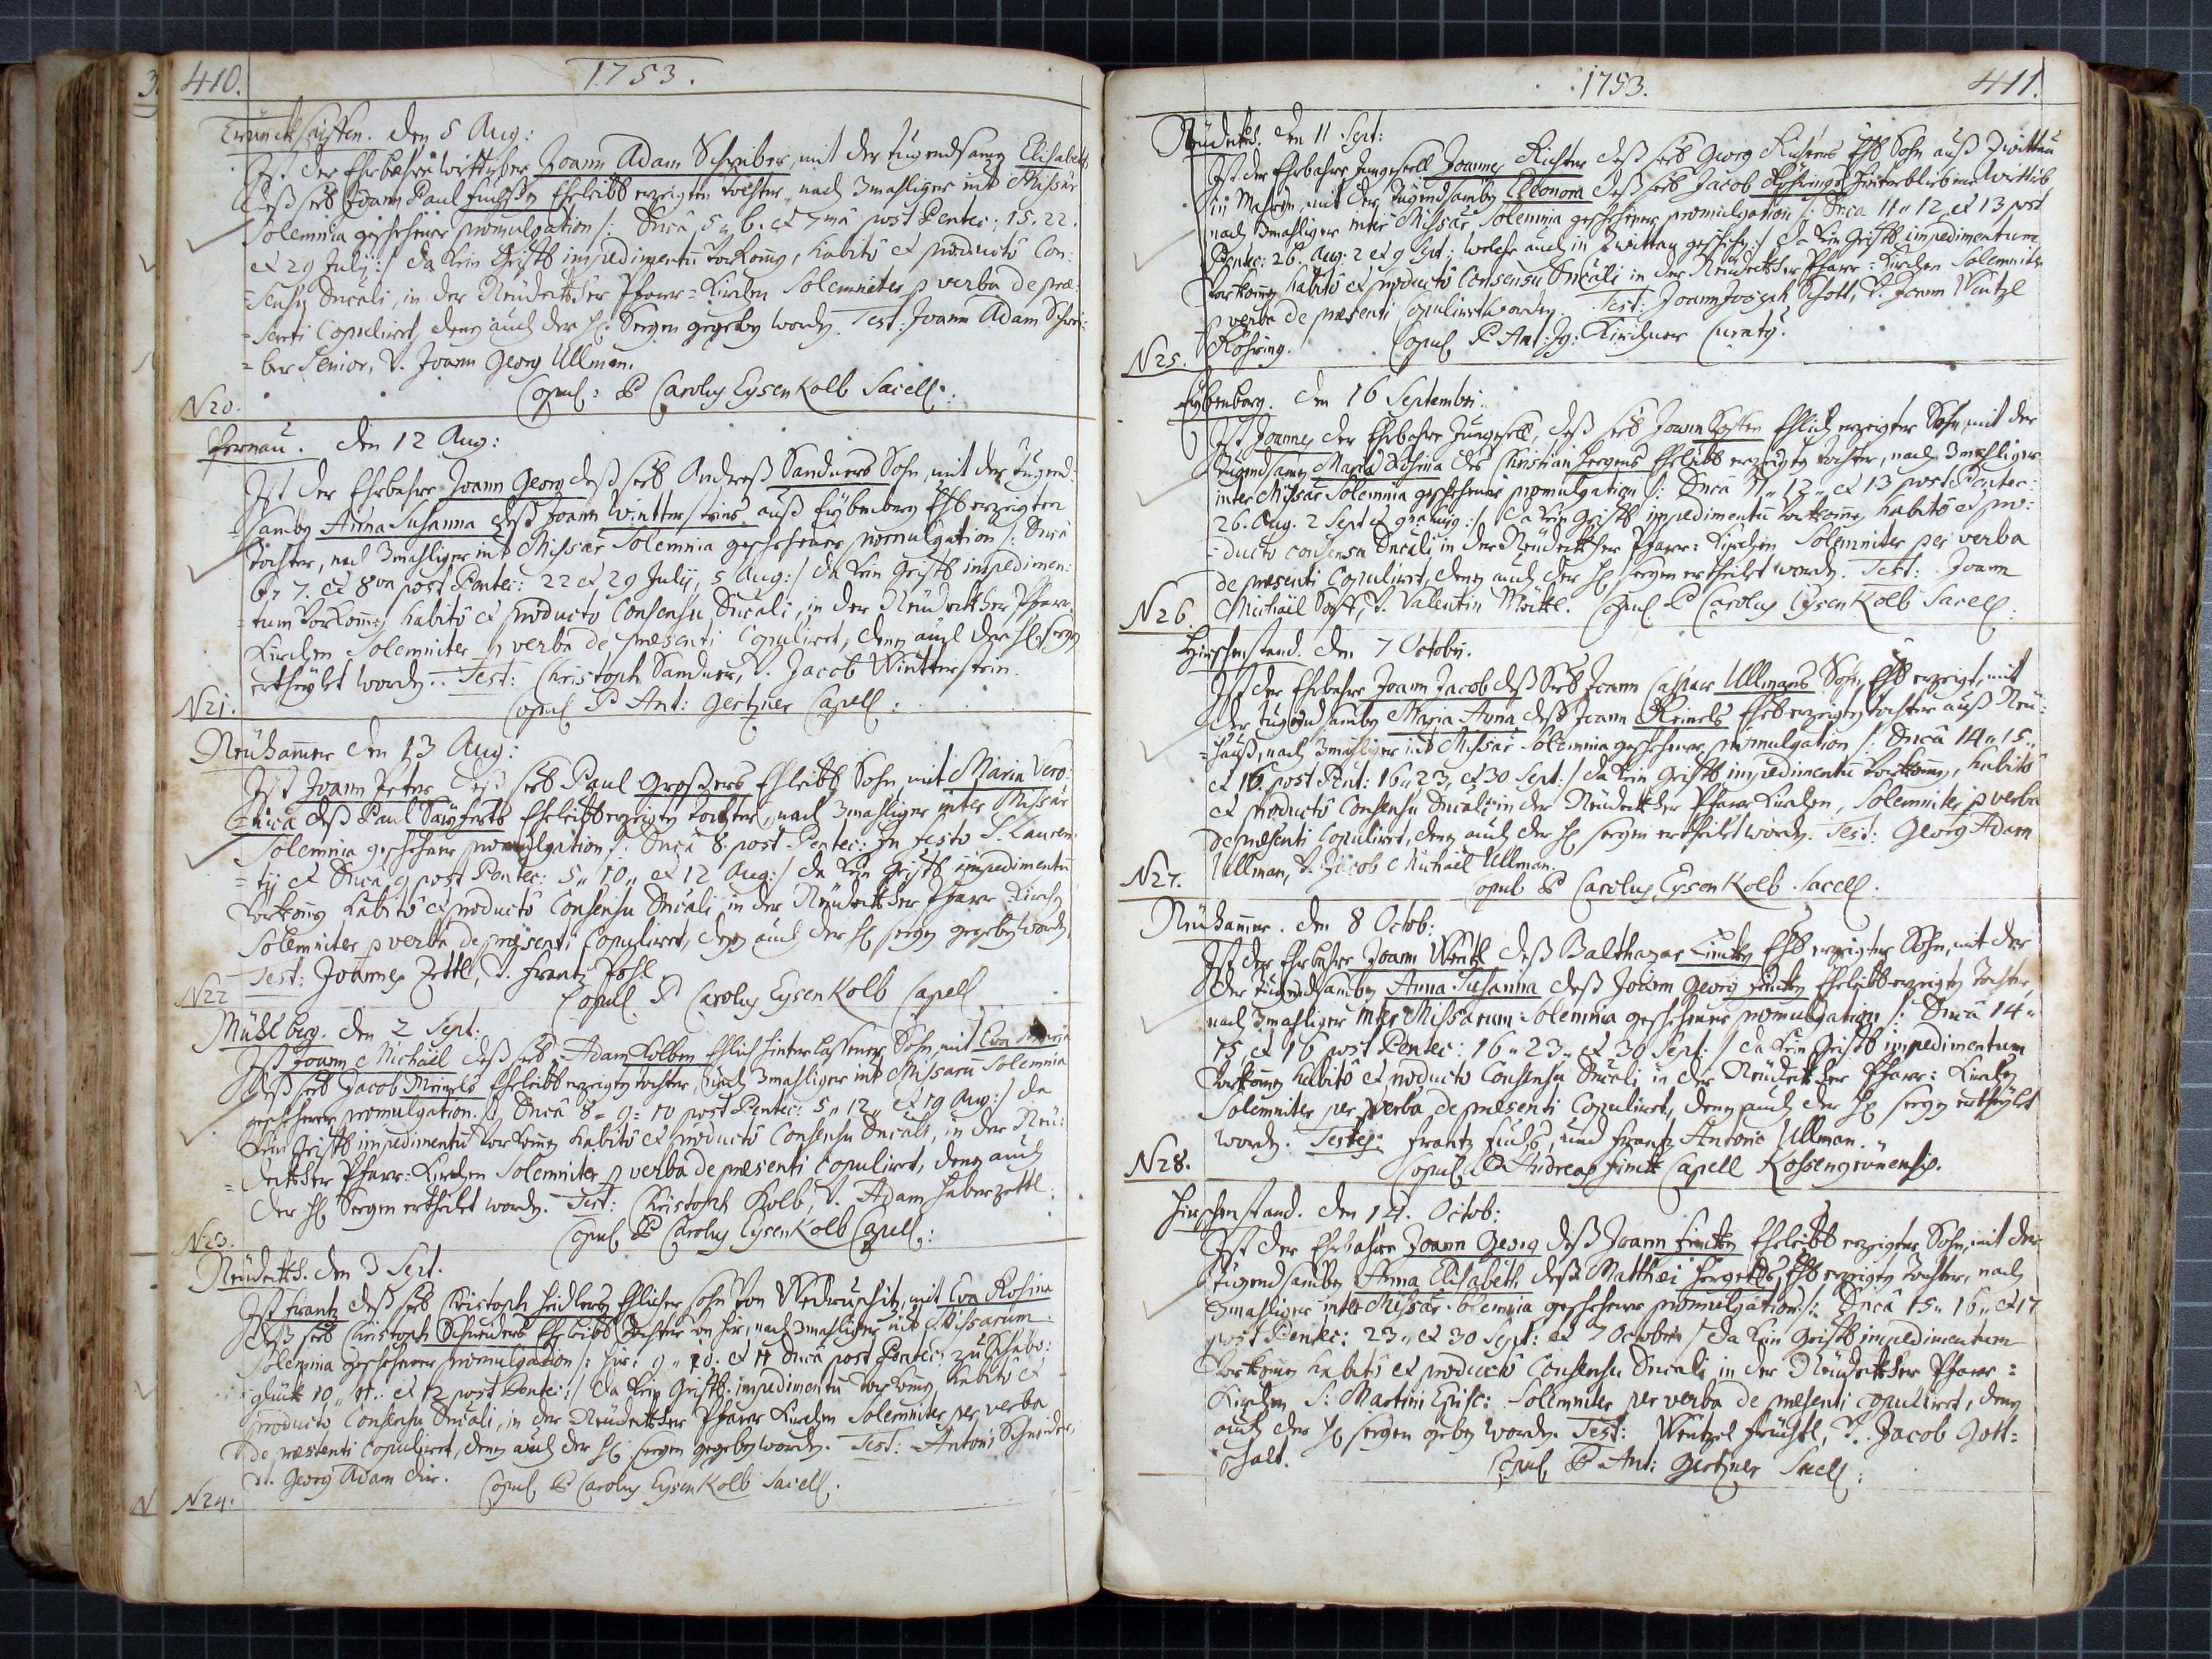 410.
1753.
Trünckseüffen. den 5 Aug:
Ist der Ehrbahre Joann Adam Schreiber, mit der Tugendsamen Elisabeth,
deß seel: Joann Paul Fuchsen Ehleibl: erzeigten Tochter, nach 3mahliger int Missar
Solemnia geschehener promulgation /: Dnca 5 „ 6. et 7ma post Pentec: 15. 22.
et 29 July :/ da kein Geistl: impedimentu vorkomen, habito et producto Con:
=sensu Ducali, in der Neüdeckher Pfarr=Kirchen Solemniter p verba de præ:
=senti Copuliret, denen auch der H: Seegen gegeben worden. Test: Joann Adam Schrei:
=ber Senior, V. Joann Georg Ullman.
N 20.
Copul: P Carolus Eysenkolb Sacell:
Bernau. den 12 Aug:
Ist der Ehrbahre Joann Georg deß seel: Andreß Sandners Sohn, mit der Tugend:
=samben Anna Susanna deß Joann Winttersteins auß Eybenberg Ehl: erzeigten
Tochter, nach 3mahliger int Missar Solemnia geschehener promulgation /: Dnca
6, 7. et 8va post Pentec: 22 et 29 July, 5 Aug: :/ da kein Geistl: impedimen:
=tum vorkomen habito et producto Consensu Ducali, in der Neüdeckher Pfarr
Kirchen Solemniter p verba de præsenti Copuliret, denen auch der H: Seegen
ertheylet worden. Test: Christoph Sandner, V. Jacob Wintterstein.
N 21.
Copul P Ant: Gertner Capell:
Neühammer den 13 Aug:
Ist Joann Peter deß seel: Paul Großers Ehleibl: Sohn, mit Maria Vero:
=nica deß Paul Säyferts Ehleibl: erzeigten Tochter, nach 3mahliger inter Missar
Solemnia geschehener promulgation /: Dnca 8. post Pentec: In festo S. Lauren:
=tij et Dnca 9 post Pentec: 5 „ 10 „ et 12 Aug: :/ da kein Geistl: impedimentu
vorkomen habito et producto Consensu Ducali in der Neüdeckher Pfarr Kirchen
Solemniter p verba de præsenti Copuliret, denen auch der H: Seegen gegeben worden,
Test: Joannes Zettl, V. Frantz Pohl
N 22
Copul P Carolus Eysenkolb Capell
Mühlberg. den 2 Sept:
Ist Joann Michael deß seel: Adam Kolben Ehlich hinterlassener Sohn, mit Eva
deß seel: Jacob Meinels Ehleibl: erzeigten Tochter, nach 3mahliger int Missaru Solemnia
geschehener promulgation. /: Dnca 8 „ 9 „ 10 post Pentec: 5 „ 12 „ et 19 Aug: :/ da
kein Geistl: impedimentu vorkomen habito et producto Consensu Ducali, in der Neü:
=deckher Pfarr: Kirchen Solemniter p verba de præsenti Copuliret, denen auch
der H: Seegen ertheilet worden. Test: Christoph Kolb, V. Adam Haberzettl:
N 23.
Copul P Carolus Eysenkolb Capell:
Neüdeckh. den 3 Sept.
Ist Frantz deß seel: Christoph Heidlers Ehlicher Sohn von, mit Eva Rosina
deß seel: Christoph Schneiders Ehleibl: Tochter von hier, nach 3mahliger int Missarum
Solemnia geschehener promulgation /: hier: 9 „ 10. et 11 Dnca post Pentec: zu Schabo:
=glück 10 „ 11 „ et 12 post Pentec: :/ da kein Geistl: impedimentu vorkomen, habito et
producto Consensu Ducali, in der Neüdeckher Pfarr Kirchen Solemniter per verba
de præsenti Copuliret, denen auch der H: Seegen gegeben worden. Test: Antoni Schneider,
V. Georg Adam
N 24.
Copul P Carolus Eysenkolb Sacell.
1753.
411.
Neüdeckh. den 11 Sept:
Ist der Ehrbahre Jungesell Joannes Richter deß seel: Georg Richters Ehl: Sohn auß Zwittau
in Mahren, mit der Tugendsamben Eleonora deß seel: Jacob Röhrings hinterbliebene Wittib
nach 3mahliger inter Missar Solemnia geschehener promulgation /: Dnca 11 „ 12 et 13 post
Pentec: 26. Aug: 2 et 9 Sept: welche auch in Zwittau geschehen :/ da kein Geistl: impedimentum
vorkomen habito et producto Consensu Ducali in der Neüdeckher Pfarr: Kirchen Solemniter
p verba de præsenti Copuliret worden. Test: Joann Joseph Schott, V. Joann Wentzl
Röhring.
N 25.
Copul P Ant: Jg: Kirchner Curaty.
Eybenberg. den 16 Septembri.
Ist Joannes der Ehrbahre Jungesell, deß seel: Joann Ehlich erzeigter Sohn, mit der
Tugendsamen Maria Rosina des Christian Hergens Ehleibl: erzeigten Tochter, nach 3mahliger
inter Missar Solemnia geschehener promulgation /: Dnca 11 „ 12 „ et 13 post Pentec:
26. Aug. 2 Sept et :/ da kein Geistl: impedimentu vorkomen habito et pro:
=ducto consensu Ducali in der Neüdeckher Pfarr: Kirchen Solemniter per verba
de præsenti Copuliret, denen auch der H: Seegen ertheilet worden. Test: Joann
Michael, V. Valentin.
N 26.
Copul P Carolus Eysenkolb Sacell:
Hirschenstand. den 7 Octobri.
Ist der Ehrbahre Joann Jacob deß Seel: Joann Caspar Ullmans Sohn, Ehl: erzeigt, mit
der Tugendsamben Maria Anna deß Joann Reinels Ehl: erzeigten Tochter auß Neü:
=hauß, nach 3mahliger int Missar Solemnia geschehener promulgation /: Dnca 14 „ 15 „
et 16 post Pent: 16 „ 23, et 30 Sept: :/ da kein Geistl: impedimentu vorkomen, habito
et producto Consensu Ducali in der Neüdeckher Pfarr Kirchen, Solemniter p verba
de præsenti Copuliret, denen auch der H: Seegen ertheilet worden. Test: Georg Adam
Ullman, V. Jacob Michael Ullman.
N 27.
Copul P Carolus Eysenkolb Sacell:
Neühammer. den 8 Octob:
Ist der Ehrbahre Joann Wentzl deß Balthazar Ehl: erzeigter Sohn, mit der
der Tugendsamben Anna Susanna deß Joann Georg Ehleibl: erzeigten Tochter,
nach 3mahliger Inter Missarum Solemnia geschehener promulgation /: Dnca 14 „
15 et 16 post Pentec: 16 „ 23 „ et 30 Sept: :/ da kein Geistl: impedimentum
vorkomen habito et producto Consensu Ducali in der Neüdeckher Pfarr: Kirchen
Solemniter per verba de præsenti Copuliret, denen auch der H: Seegen ertheylet
worden. Testes: Frantz Fuchs, und Frantz Antoni Ullman.
N 28.
Copul P Andreas Finck Capell Rossengrünensis.
Hirschenstand. den 14. Octob:
Ist der Ehrbahre Joann Georg deß Joann Fincken Ehleibl: erzeigter Sohn, mit der
Tugendsamben Anna Elisabeth deß Matthæi Hergeths Ehl: erzeigten Tochter, nach
3mahliger inter Missar: Solemnia geschehener promulgation /: Dnca 15 „ 16 „ et 17
post Pentec: 23 „ et 30 Sept: et 7 Octobris :/ da kein Geistl: impedimentum
vorkomen habito et producto Consensu Ducali in der Neüdeckher Pfarr:
Kirchen S: Martini Episc: Solemniter per verba de præsenti copuliret, denen
auch der H: Seegen geben worden. Test: Wentzel Früchtl, V. Jacob Gott:
schalt.
Copul P Ant: Gertner Sacell: